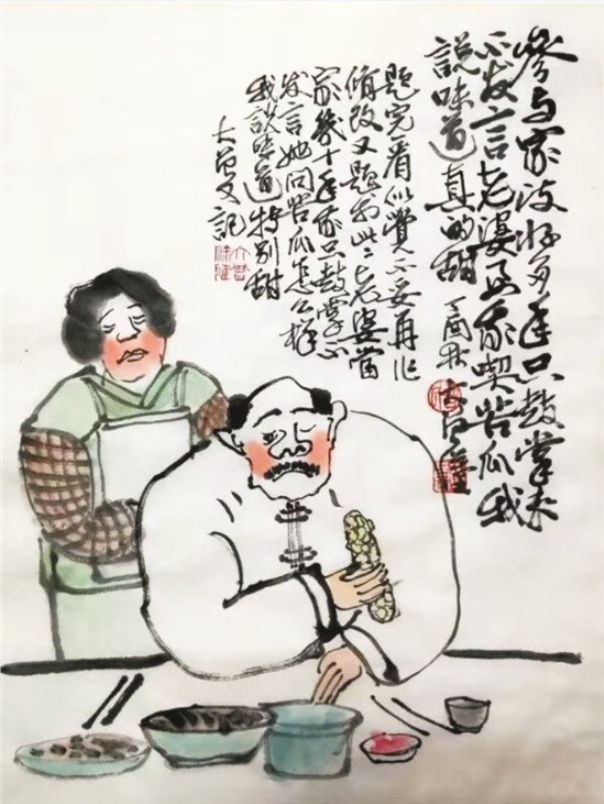 参与家政好多年只鼓掌来
不发言老婆我喫苦瓜我
説味道真的甜 丁酉秋
题完一看似觉不妥再作
修改又题于此二老婆当
家几十年我只鼓掌不
发言她问苦瓜怎么样
我説味道特别甜
大又記